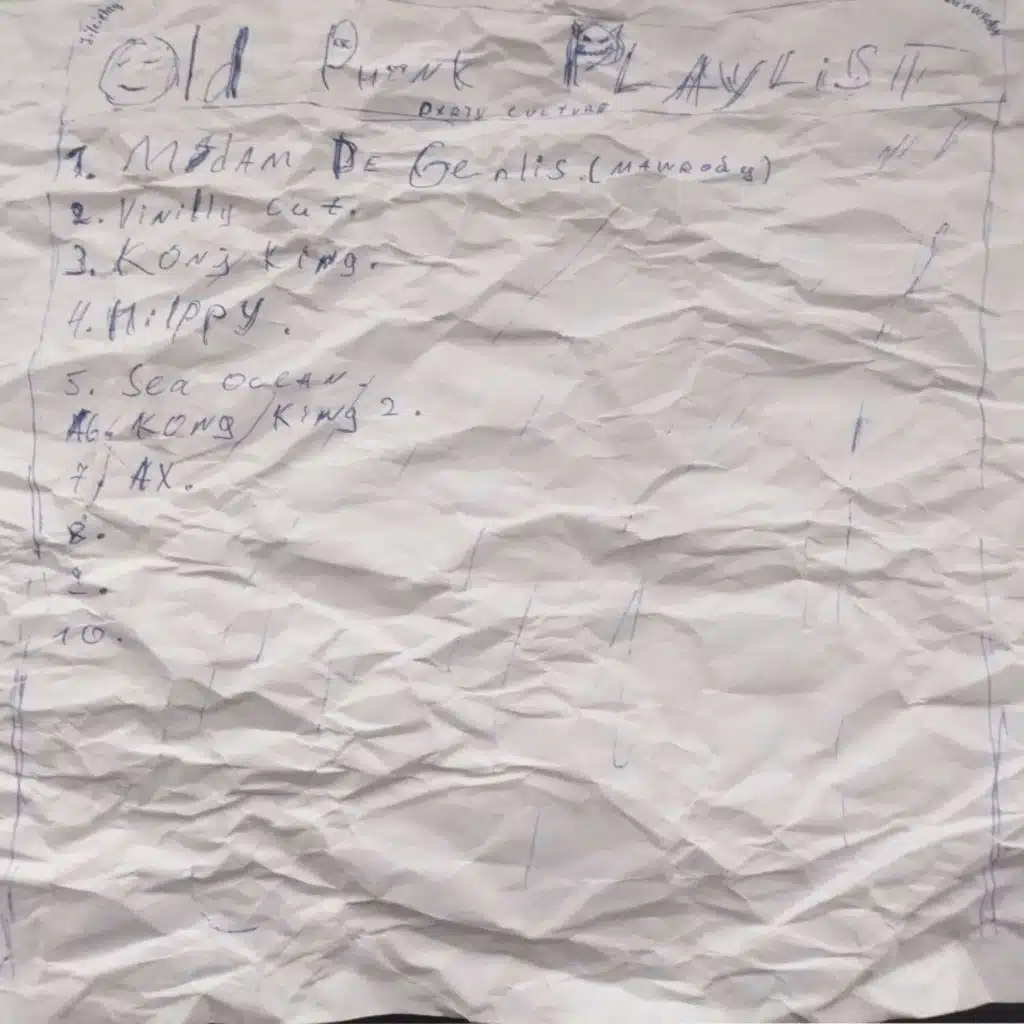 Old Punk PLAYLiST
DIRTY CULTURE
1. MADAM DE Genlis. (MAWRODY)
2. Vinilly cut.
3. Kong King.
4. Hilppy.
5. Sea OCEAN.
6. KONg/King 2.
7. AX.
8.
9.
10.